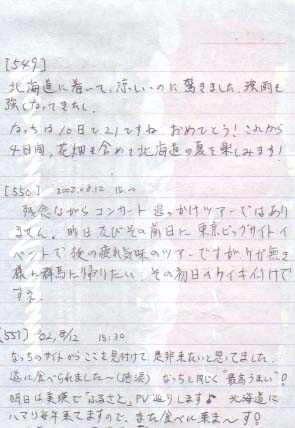 [549]
北海道に着いて、涼しいのに驚きました。残雨も
強くなってきたし
なっちは10日で21ですね おめでとう! これから
4日間、花畑も含めて北海道の夏を楽しみます!
[550] 2002.08.12 15:00
残念ながらコンサート追っかけツアーではあり
ません。昨日及びその前日に東京ビッグサイトイ
ベントで後の疲れ気味のツアーですがケガ無き
様に群馬に帰りたい その初日のケイキ付けで
すネ。
[551] '02, 8/12 15:30
なっちのサイトからここを見付けて是非来たいと思ってました。
遂に食べられました〜 なっちと同じく"最高うまい"!
明日は美瑛で「ふるさと」PV巡りします♪ 北海道に
ハマり毎年来てますので、また食べに来ま〜す!